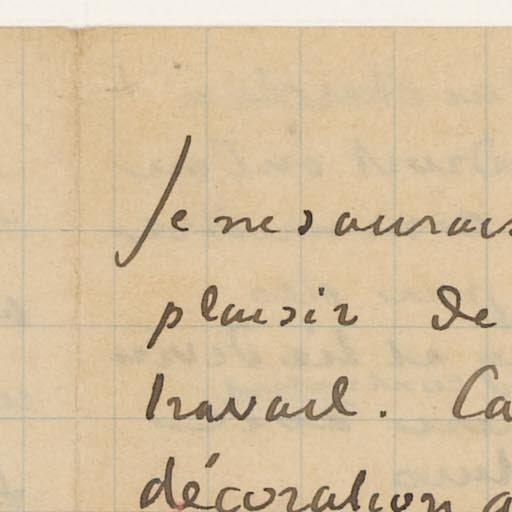 Je ne saurais
plaisir de
travail. Ca
décoration a